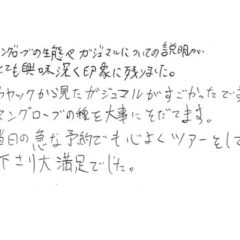 ングローブの生態やガジュマルについての説明が
とても興味深く印象に残りました。
カヤックから見たガジュマルがすごかったです
マングローブの種を大事にそだてます。
当日の急な予約でも心よくツアーをして
下さり大満足でした。